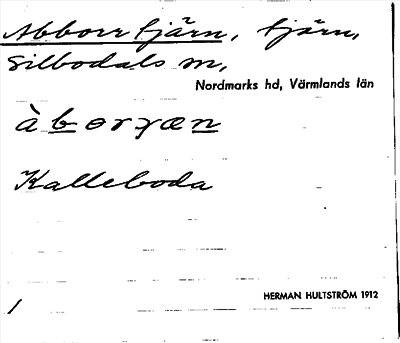 Abborrtjärn, tjärn,
Silbodals sn,
Nordmarks hd, Värmlands län
Kalleboda
HERMAN HULTSTRÖM 1912
1